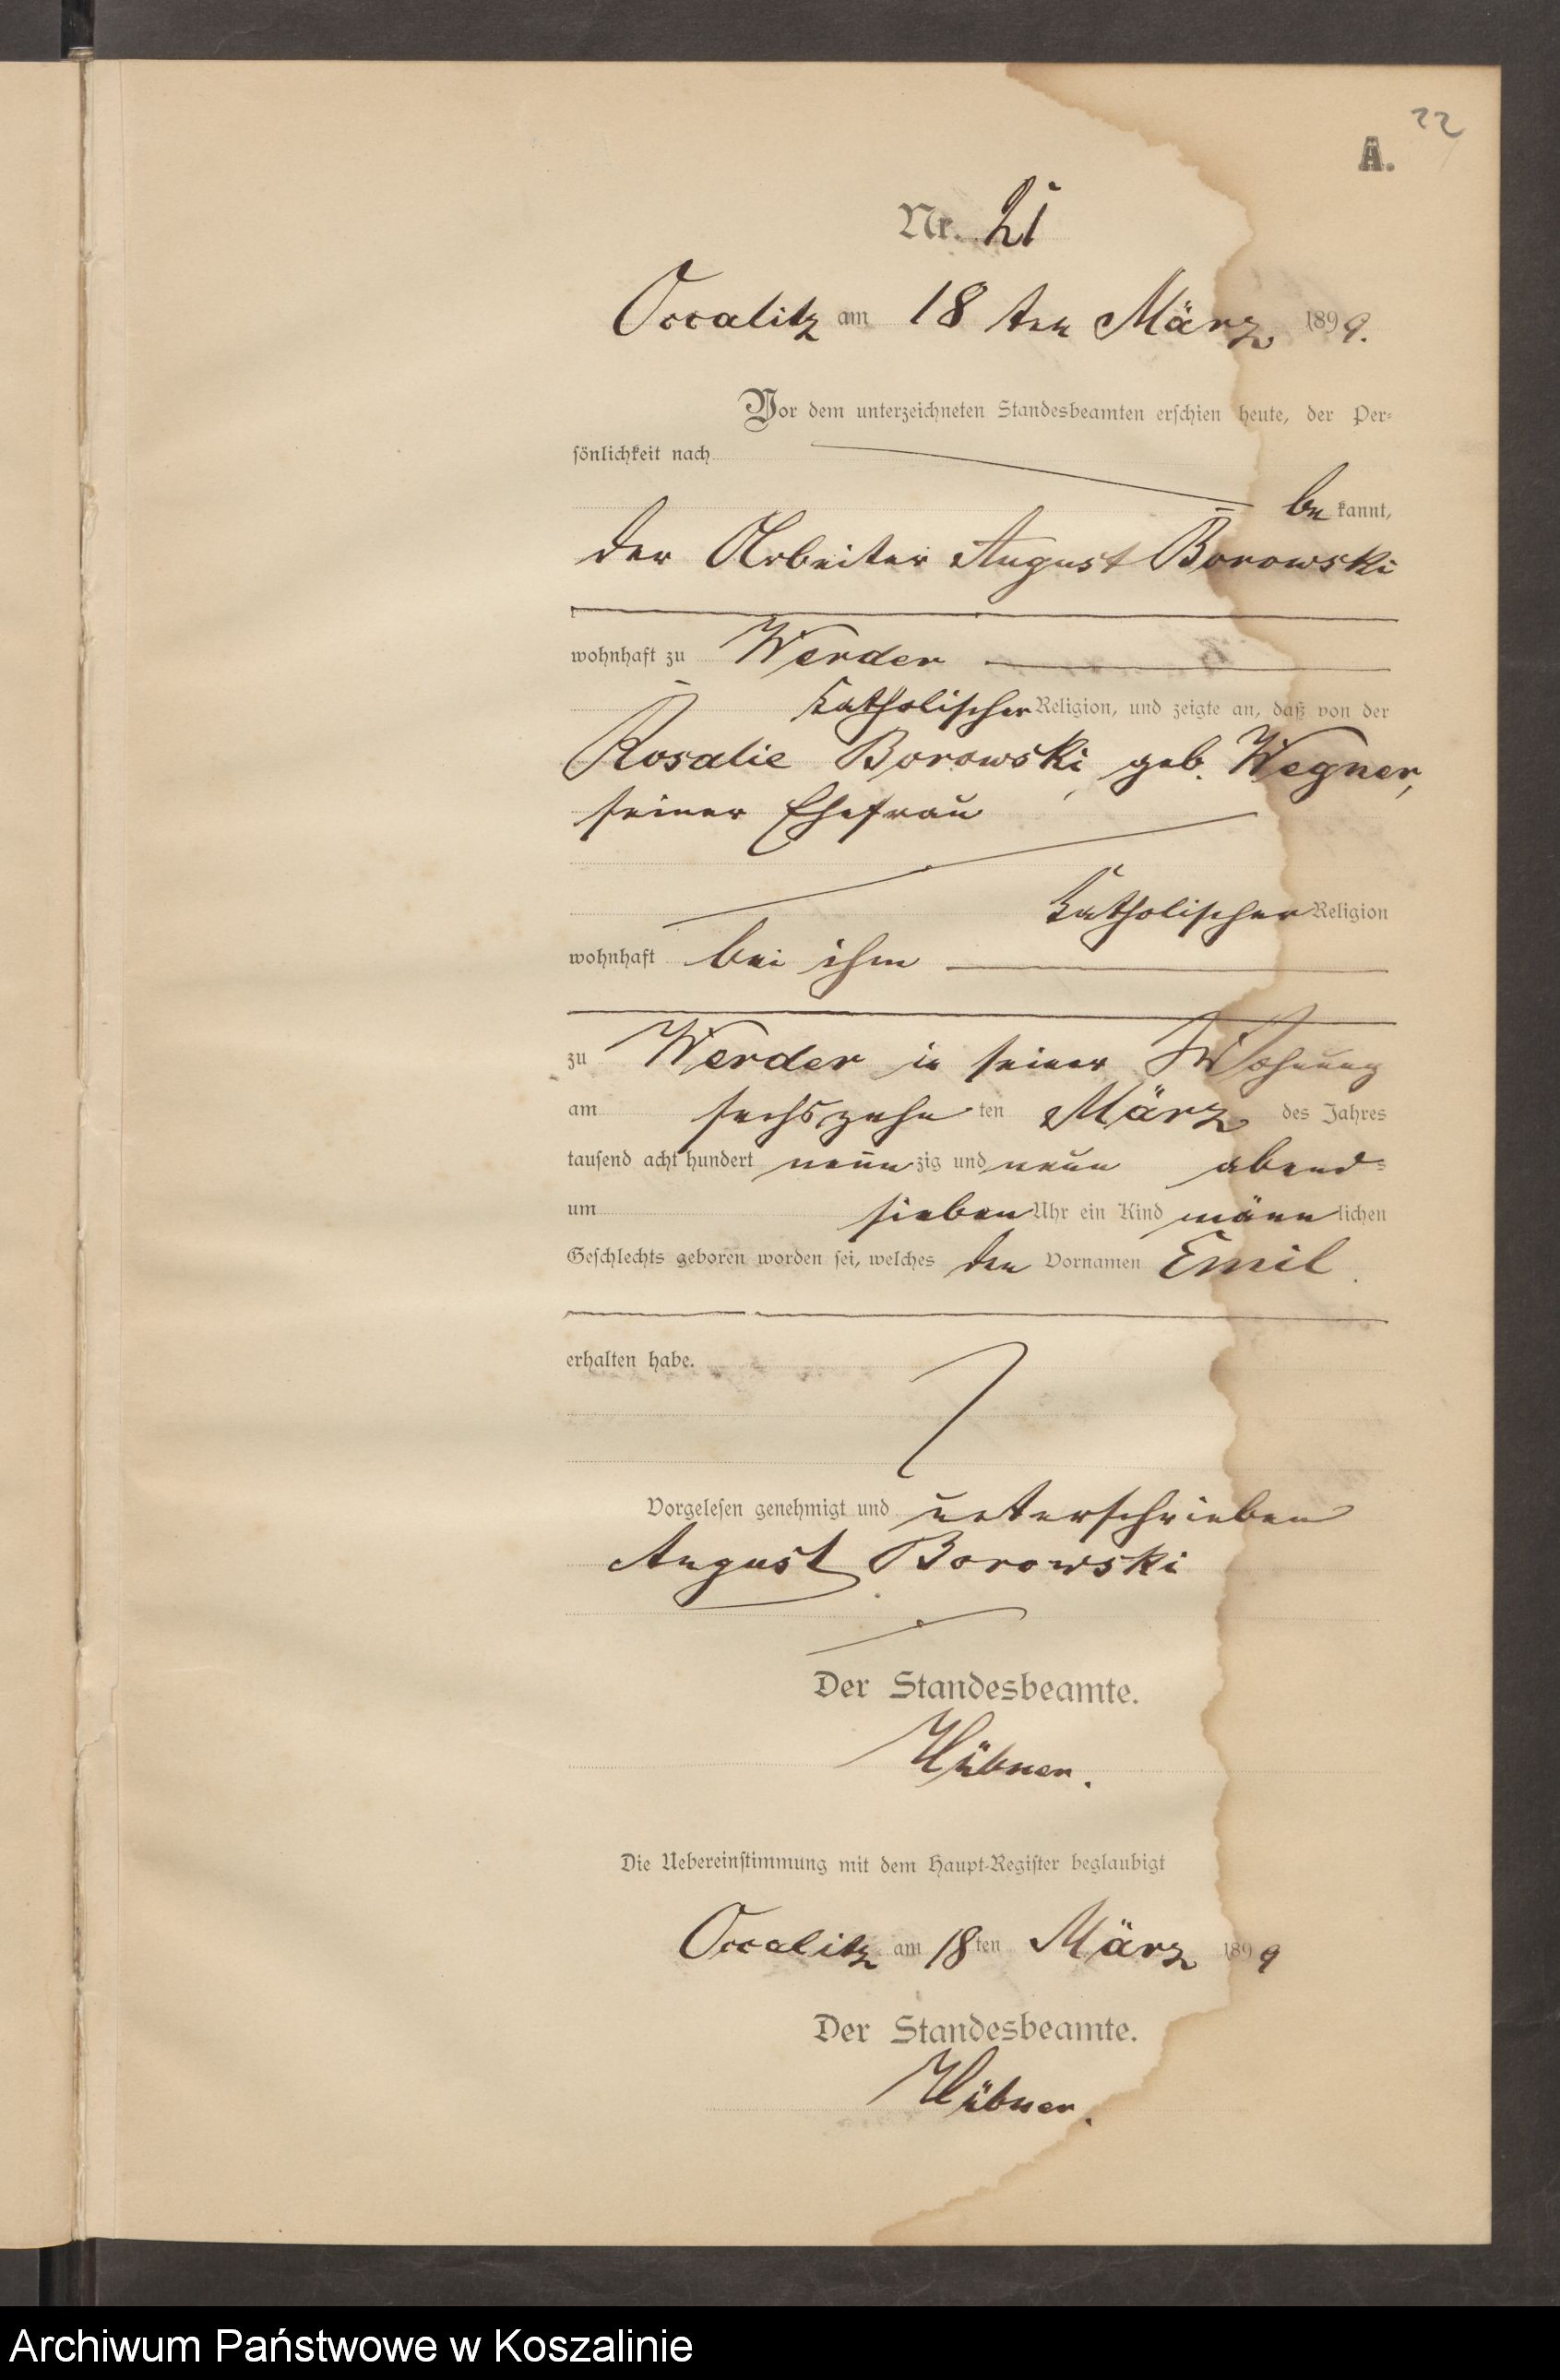 22
A.
Nr. 21
Occalitz am 18 ten März 1899.
Vor dem unterzeichneten Standesbeamten erschien heute, der Per-
sönlichkeit nach
be kannt,
der Arbeiter August Borowski
wohnhaft zu Werder
katholischer Religion, und zeigte an, daß von der
Rosalie Borowski geb. Wegner,
seiner Ehefrau
katholischer Religion
wohnhaft bei ihm
zu Werder in seiner Wohnung
am sechszehn ten März des Jahres
tausend acht hundert neun zig und neun abend-
um sieben Uhr ein Kind männ lichen
Geschlechts geboren worden sei, welches den Vornamen Emil.
erhalten habe.
Vorgelesen genehmigt und unterschrieben
August Borowski
Der Standesbeamte.
Hübner.
Die Uebereinstimmung mit dem Haupt-Register beglaubigt
Occalitz am 18 ten März 1899
Der Standesbeamte.
Hübner.
Archiwum Państwowe w Koszalinie